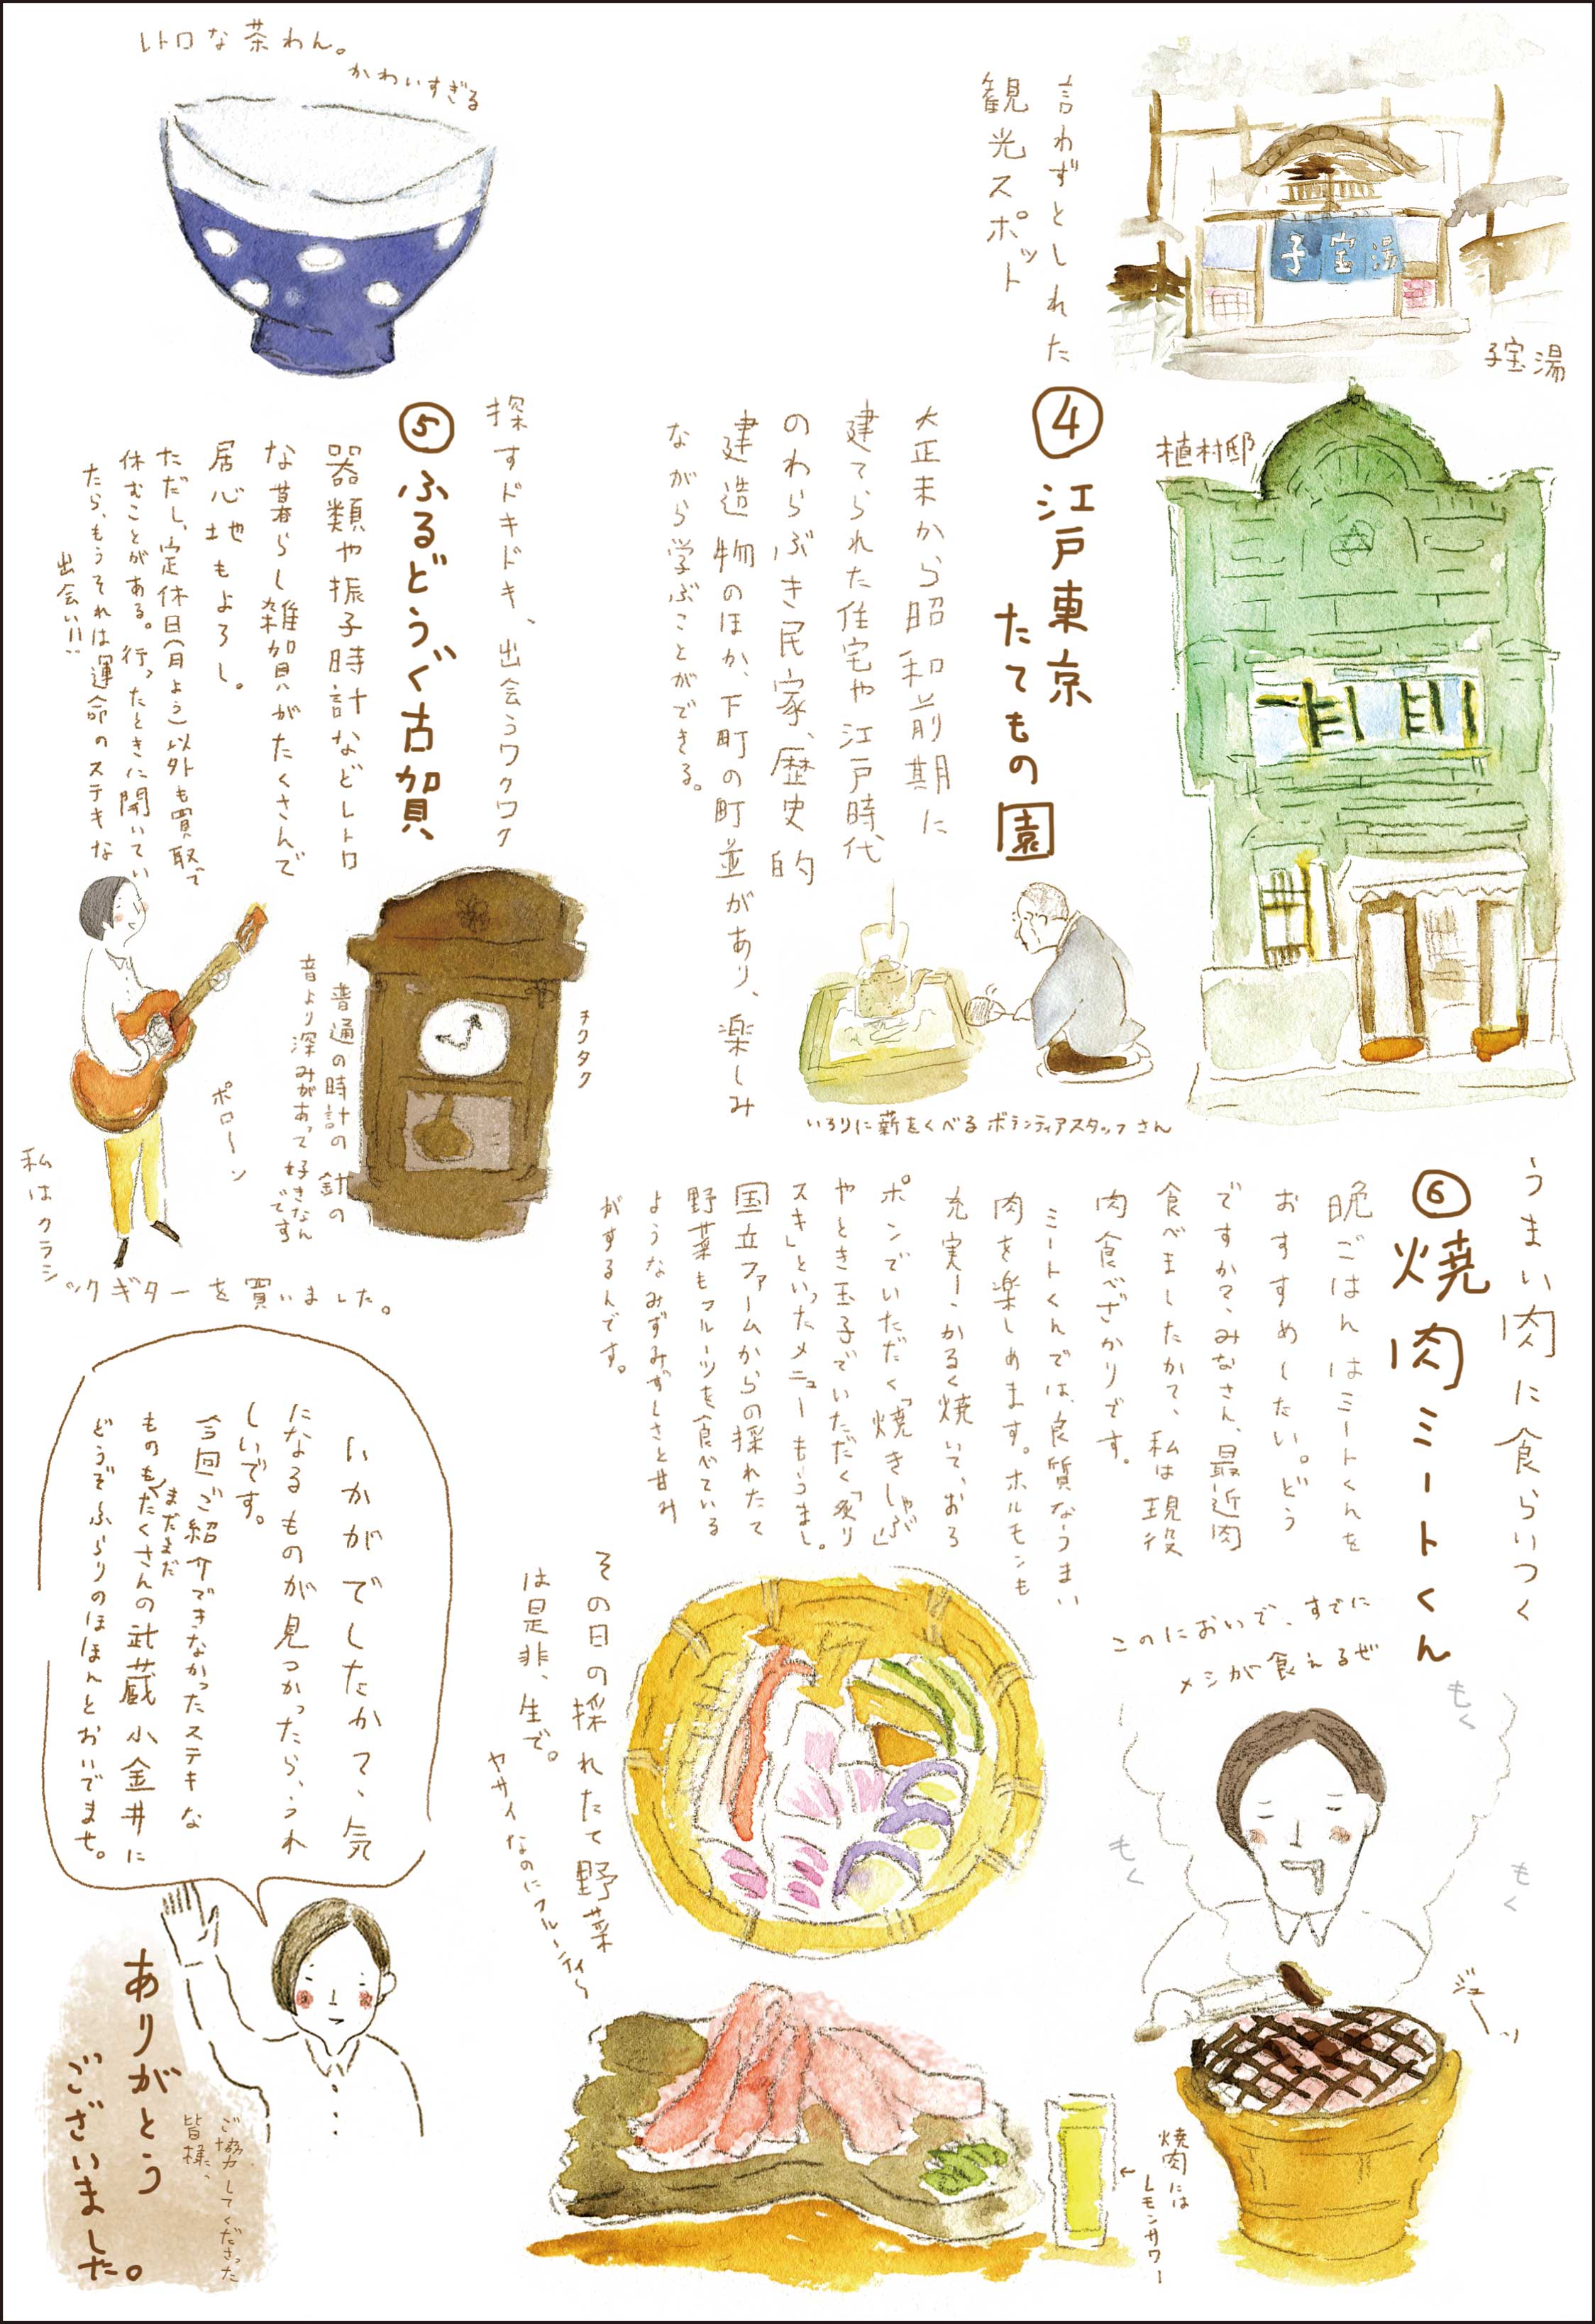 言わずとしれた
観光スポット
子宝湯
子宝湯
植村邸
④江戸東京
たてもの園
大正末から昭和前期に
建てられた住宅や江戸時代
のわらぶき民家、歴史的
建造物のほか、下町の町並があり、楽しみ
ながら学ぶことができる。
いろりに薪をくべるボランティアスタッフさん
レトロな茶わん。
かわいすぎる
探すドキドキ、出会うワクワク
⑤ふるどうぐ古賀
器類や振子時計などレトロ
な暮らし雑貨がたくさんで
居心地もよろし。
ただし、定休日(月よう)以外も買取で
休むことがある。行ったときに開いてい
たら、もうそれは運命のステキな
出会い!!
チクタク
普通の時計の針の
音より深みがあって好きなん
です
ポローン
私はクラシックギターを買いました。
うまい肉に食らいつく
⑥焼肉ミートくん
晩ごはんはミートくんを
おすすめしたい。どう
ですか?、みなさん、最近肉
食べましたか?、私は現役
肉食べざかりです。
ミートくんでは、良質なうまい
肉を楽しめます。ホルモンも
充実!、かるく焼いて、おろ
ポンでいただく「焼きしゃぶ」
やとき玉子でいただく「炙り
スキ」といったメニューもうまし。
国立ファームからの採れたて
野菜もフルーツを食べている
ようなみずみずしさと甘み
がするんです。
このにおいで、すでに
メシが食えるぜ
もく
もく
もく
ジューッ
焼肉には
レモンサワー
その日の採れたて野菜
は是非、生で。
ヤサイなのにフルーティ〜
いかがでしたか?、気
になるものが見つかったら、うれ
しいです。
今回ご紹介できなかったステキな
ものも、まだまだたくさんの武蔵小金井に
どうぞふらりのほほんとおいでませ。
ご協力してくださった
皆様、
ありがとう
ございました。